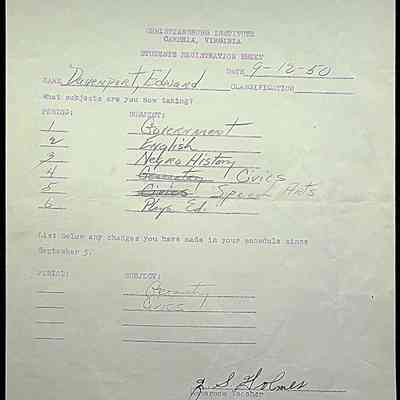 CHRISTIANSBURG INSTITUTE
CAMBRIA, VIRGINIA
STUDENTS REGISTRATION SHEET
DATE 9-12-50
NAME Davenport, Edward CLASSIFICATION
What subjects are you now taking?
PERIOD: SUBJECT:
1 Government
2 English
3 Negro History
4 Geometry Civics
5 Civics Speech Arts
6 Phys. Ed.
List below any changes you have made in your schedule since
September 5.
PERIOD: SUBJECT:
Geometry
Civics
J. S. Holmes
Homeroom Teacher